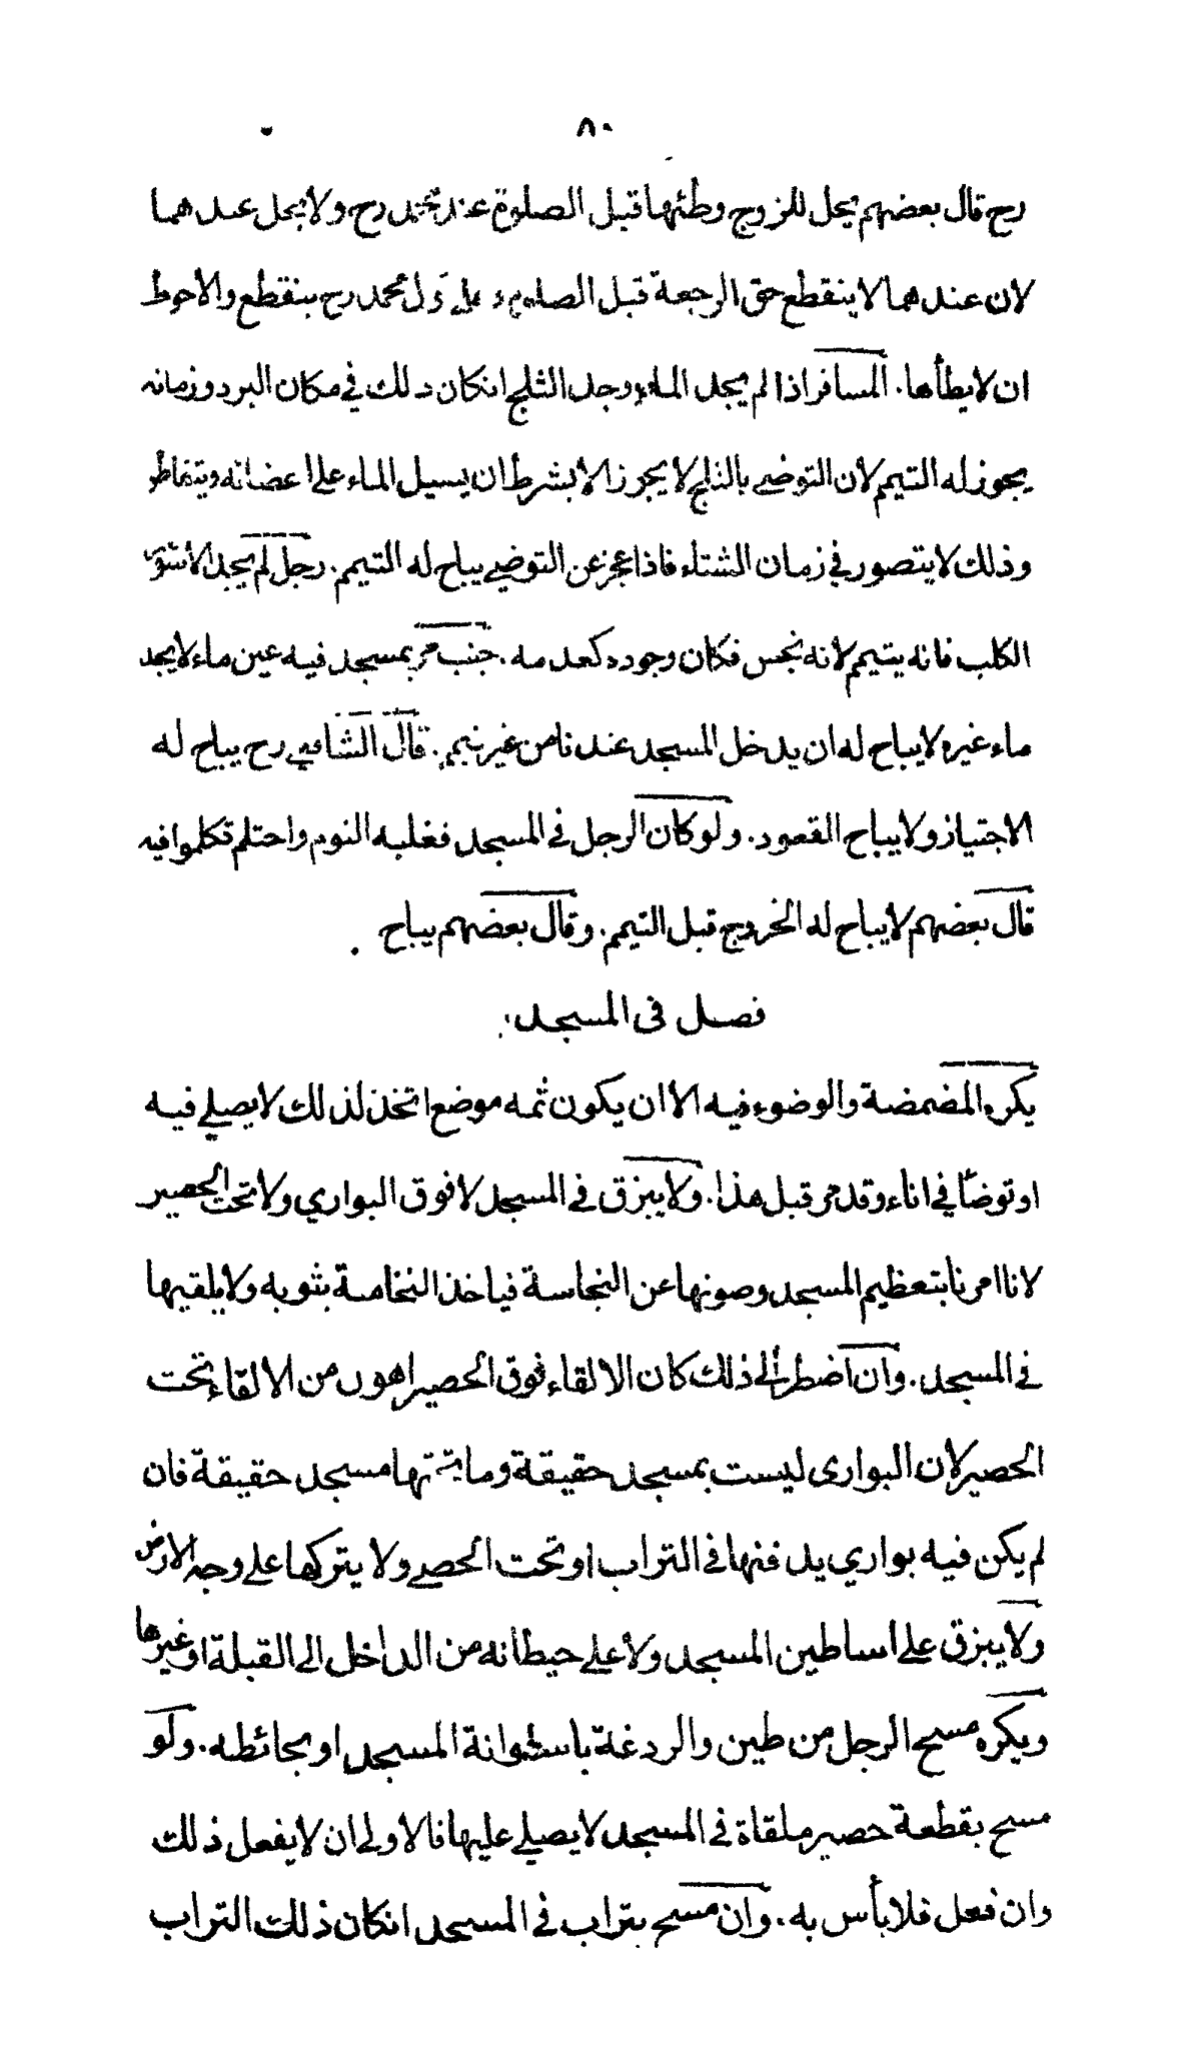 ٨٠
رح قال بعضهم يحل للزوج وطئها قبل الصلوة عند محمد رح ولا يحل عندهما
لان عندهما لا ينقطع حق الرجعة قبل الصلوة وعلى قول محمد رح ينقطع والاحوط
ان لا يطأها. المسافر اذا لم يجد الماء ووجد الثلج انكان ذلك في مكان البرد وزمانه
يجوز له التيمم لان التوضي بالثلج لا يجوز الا بشرط ان يسيل الماء على اعضائه ويتقاطر
وذلك لا يتصور في زمان الشتاء فاذا عجز عن التوضي يباح له التيمم. رجل لم يجد الا سور
الكلب فانه يتيمم لانه نجس فكان وجوده كعدمه. جنب مر بمسجد فيه عين ماء لا يجد
ماء غيره لا يباح له ان يدخل المسجد عندنا من غير تيمم. قال الشافعي رح يباح له
الاجتياز ولا يباح القعود. ولو كان الرجل في المسجد فغلبه النوم واحتلم تكلموا فيه
قال بعضهم لا يباح له الخروج قبل التيمم. وقال بعضهم يباح.
فصل فى المسجد
يكره المضمضة والوضوء فيه الا ان يكون ثمه موضع اتخذ لذلك لا يصلي فيه
او توضأ في اناء وقد مر قبل هذا. ولا يبزق في المسجد لا فوق البواري ولا تحت الحصير
لانا امرنا بتعظيم المسجد وصونها عن النجاسة فياخذ النخامة بثوبه ولا يلقيها
في المسجد. وان اضطر الى ذلك كان الالقاء فوق الحصير اهون من الالقاء تحت
الحصير لان البوارى ليست بمسجد حقيقة وما تحتها مسجد حقيقة فان
لم يكن فيه بواري يدفنها في التراب او تحت الحصى ولا يتركها على وجه الارض
ولا يبزق على اساطين المسجد ولا على حيطانه من الداخل الى القبلة او غيرها
ويكره مسح الرجل من طين والردغة باسطوانة المسجد او بحائطه. ولو
مسح بقطعة حصير ملقاة في المسجد لا يصلي عليها فالاولى ان لا يفعل ذلك
وان فعل فلا بأس به. وان مسح بتراب في المسجد انكان ذلك التراب